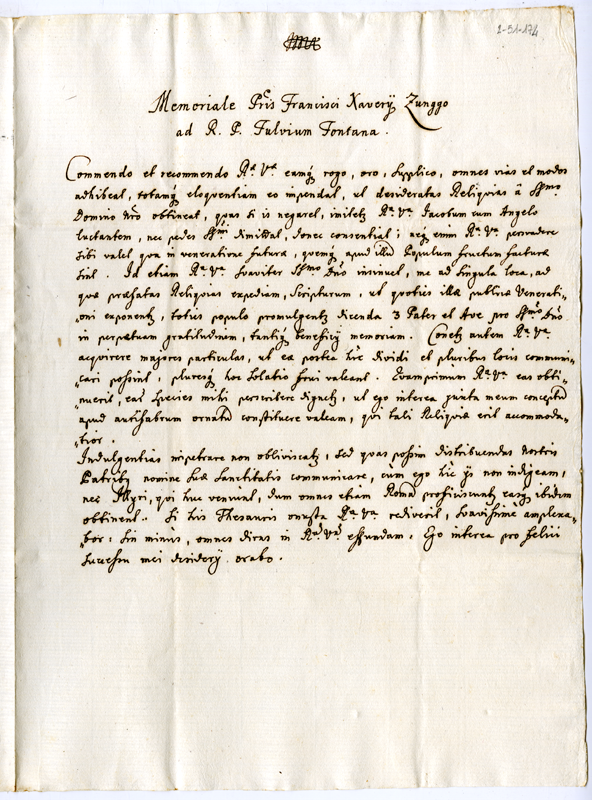 2-51-174
Memoriale Pris Francisci Xaverij Zunggo
ad R. P. Fulvium Fontana.
Commendo et recommendo Ra Va eamq rogo, oro, supplico, omnes vias et modos
adhibeat, totamq eloquentiam eo impendat, ut desideratas Reliquias â SSmo
Domino Nro obtineat, quas si is negaret, imitetz Ra Va Jacobum cum Angelo
luctantem, nec pedes SSmi dimittat, donec consentiat; neq enim Ra Va persuadere
sibi valet qua in veneratione futuræ, quemq apud illũ Populum fructum facturæ
sint. Id etiam Ra Va suaviter SSmo Dño insinuet, me ad singula loca, ad
quæ præfatas Reliquias expediam, Scripturum, ut quoties illæ publicæ Venerati-
oni exponentz, toties populo promulgentz dicenda 3 Pater et Ave pro SSmo Dño
in perpetuam gratitudinem, tantiq beneficij memoriam. Conetz autem Ra Va
acquirere majores particulas, ut ea postea hic dividi et pluribus locis communi-
cari possint, pluresq hoc solatio frui valeant. Quamprimum Ra Va eas obti-
nuerit, eas species mihi perscribere dignetz, ut ego interea juxta meum conceptũ
apud aurifabrum ornatũ constituere valeam, qui tali Reliquiæ erit accommoda-
tior.
Indulgentias impetrare non obliviscatz, sed quas possim distribuendas nostris
Patribz nomine suæ Sanctitatis communicare, cùm ego hic ijs non indigeam,
nec Illyri, qui huc veniunt, dum omnes etiam Romã proficiscuntz easq ibidem
obtinent. Si his Thesauris onusta Ra Va redierit, suavissimè amplexa-
bor; sin minus, omnes diras in Ram Vam effundam. Ego interea pro felici
successu mei desiderij orabo.